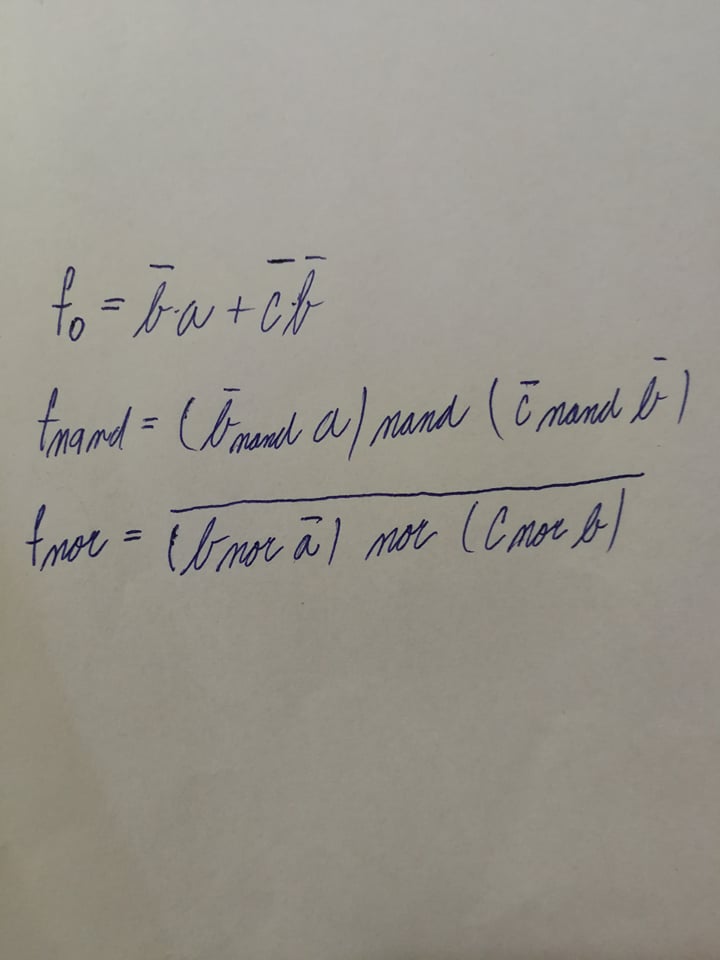 f₀ = b̄·a + c̄·b̄
fnand = (b̄ nand a) nand (c̄ nand b̄)
fnor = \overline{(b nor ā) nor (c nor b)}